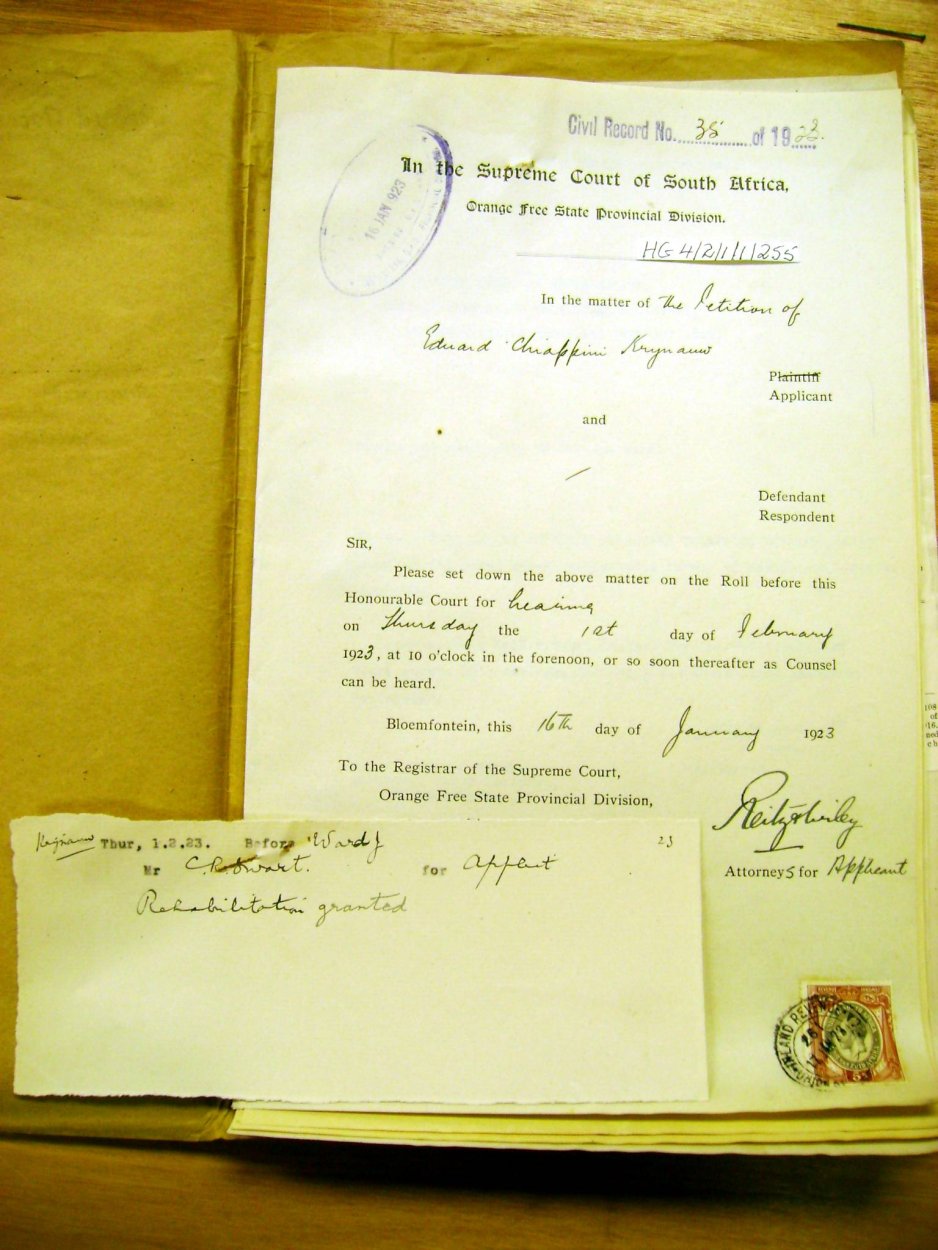 Civil Record No. 35 of 1923.
16 JAN 923
In the Supreme Court of South Africa,
Orange Free State Provincial Division.
HG 4/2/1/1/255
In the matter of the Petition of
Eduard Chiappini Krynauw
Plaintiff
Applicant
and
Defendant
Respondent
SIR,
Please set down the above matter on the Roll before this
Honourable Court for hearing
on Thursday the 1st day of February
1923, at 10 o'clock in the forenoon, or so soon thereafter as Counsel
can be heard.
Bloemfontein, this 16th day of January 1923
To the Registrar of the Supreme Court,
Orange Free State Provincial Division,
Attorneys for Applicant
Krynauw Thur, 1.2.23. Before Ward J
23
Mr C.R. Swart. for Applicant
Rehabilitation granted
INLAND REVENUE